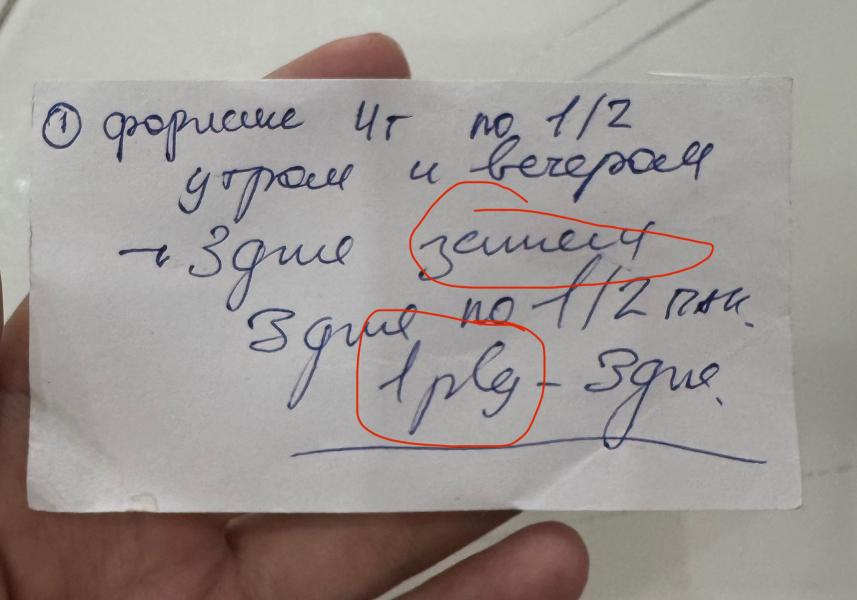 ① форлакс 4г по 1/2
утром и вечером
→ 3 дня затем
3 дня по 1/2 пак.
1 р/д - 3 дня.